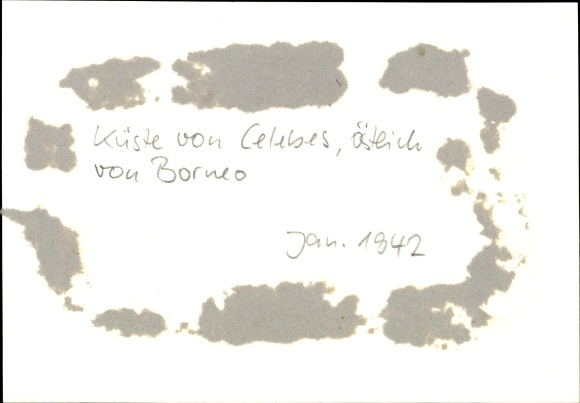 Küste von Celebes, östlich
von Borneo
Jan. 1942